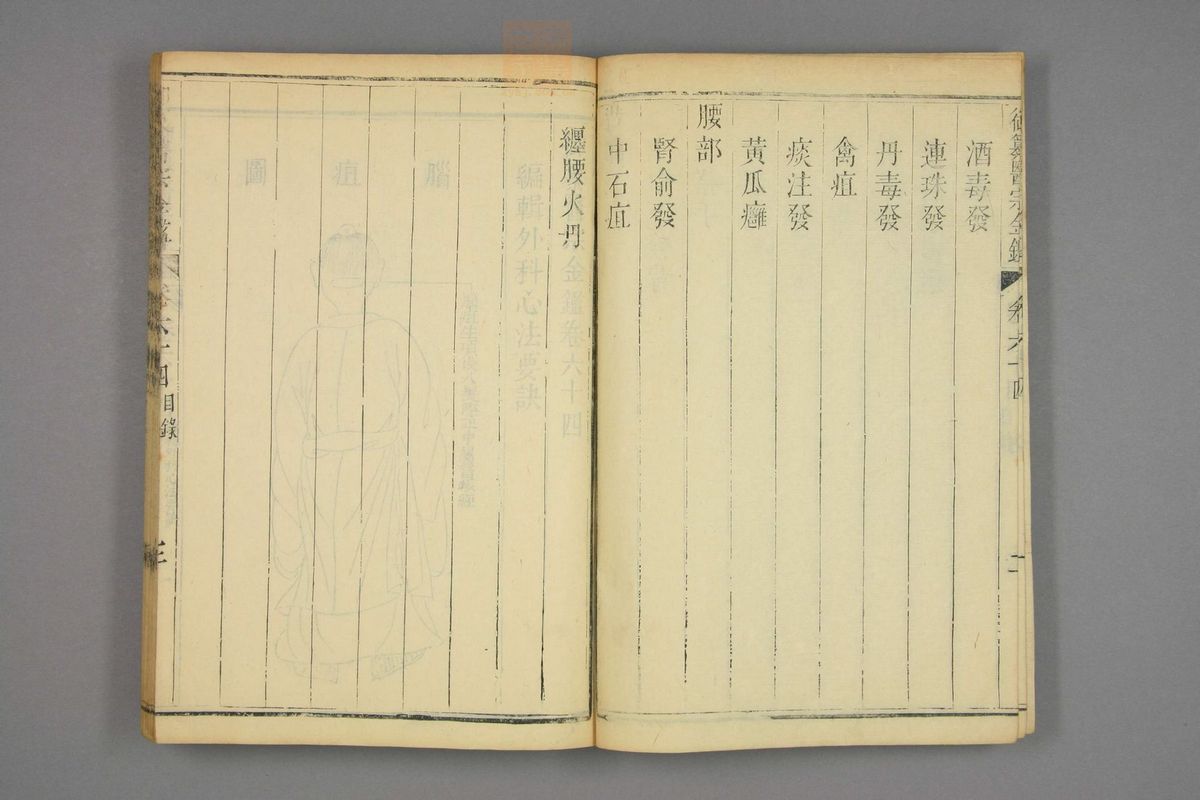 御纂醫宗金鑑 卷六十四 二
酒毒發
連珠發
丹毒發
禽疽
痰注發
黃瓜癰
腰部
腎俞發
中石疽
纏腰火丹
金鑑卷六十四
編輯外科心法要訣
腦
疽
圖
卷六十四 目錄 三